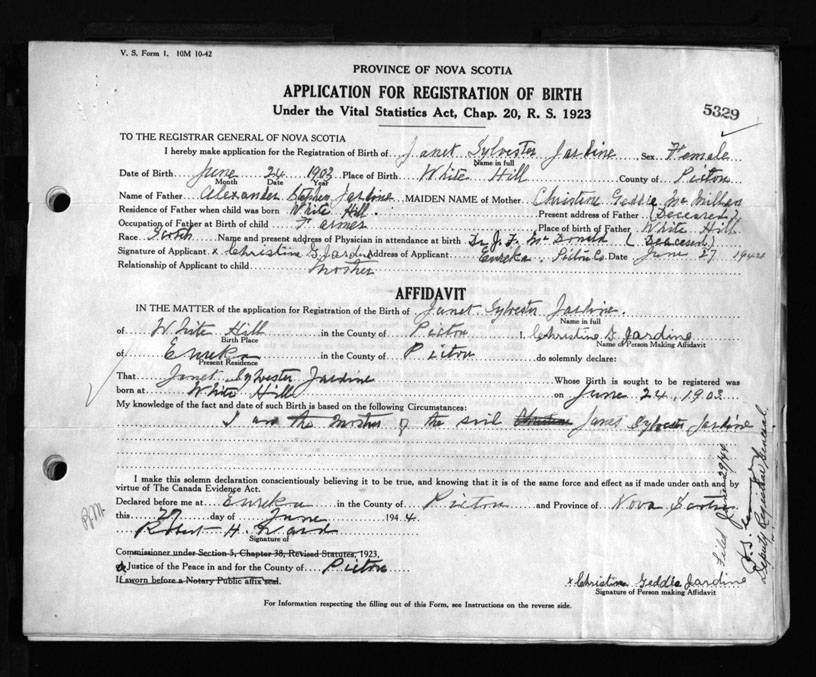 V. S. Form 1. 10M 10-42
PROVINCE OF NOVA SCOTIA
APPLICATION FOR REGISTRATION OF BIRTH
Under the Vital Statistics Act, Chap. 20, R. S. 1923
5329
TO THE REGISTRAR GENERAL OF NOVA SCOTIA
I hereby make application for the Registration of Birth of Janet Sylvester Jardine Sex Female
Name in full
Date of Birth June 24 1903 Place of Birth White Hill County of Pictou
Month Date Year
Name of Father Alexander Stephen Jardine MAIDEN NAME of Mother Christine Geddie McMillan
Residence of Father when child was born White Hill. Present address of Father (Deceased)
Occupation of Father at Birth of child Farmer Place of birth of Father White Hill
Race Scotch Name and present address of Physician in attendance at birth Dr J. F. McDonald (Deceased)
Signature of Applicant x Christine G Jardine Address of Applicant Eureka. Pictou Co. Date June 27 1944
Relationship of Applicant to child Mother
AFFIDAVIT
IN THE MATTER of the application for Registration of the Birth of Janet Sylvester Jardine.
Name in full
of White Hill in the County of Pictou I, Christine G. Jardine
Birth Place Name of Person Making Affidavit
of Eureka in the County of Pictou do solemnly declare:
Present Residence
That Janet Sylvester Jardine Whose Birth is sought to be registered was
born at White Hill on June 24. 1903
My knowledge of the fact and date of such Birth is based on the following Circumstances:
I am the mother of the said Christine Janet Sylvester Jardine
I make this solemn declaration conscientiously believing it to be true, and knowing that it is of the same force and effect as if made under oath and by
virtue of The Canada Evidence Act.
Declared before me at Eureka in the County of Pictou and Province of Nova Scotia
this 27 day of June 1944
Robert H. Ward
Signature of
Commissioner under Section 5, Chapter 38, Revised Statutes, 1923,
a Justice of the Peace in and for the County of Pictou
If sworn before a Notary Public affix seal.
x Christine Geddie Jardine
Signature of Person making Affidavit
For Information respecting the filling out of this Form, see Instructions on the reverse side.
Filed June 29/44
Deputy Registrar General